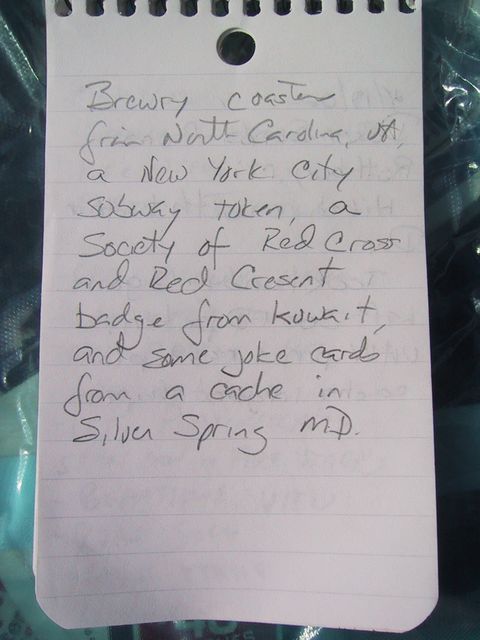 Brewry coaster
from North Carolina, VA,
a New York City
subway token, a
Society of Red Cross
and Red Cresent
badge from Kuwait,
and some joke cards
from a cache in
Silver Spring M.D.